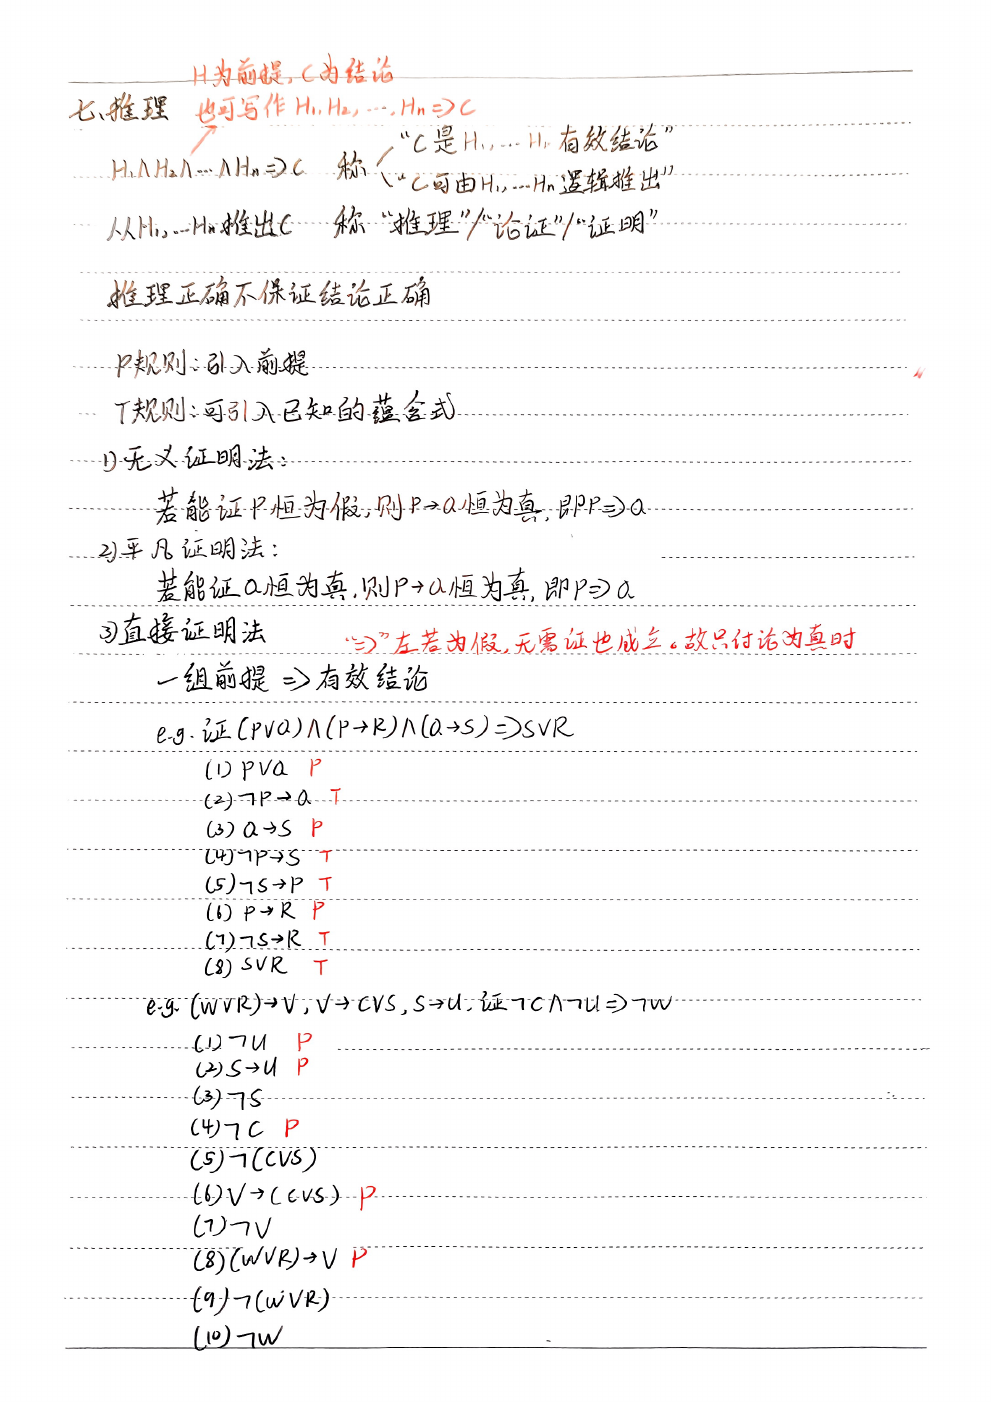 H为前提,C为结论
七、推理 也可写作 H₁,H₂,…,Hn⇒C
H₁∧H₂∧…∧Hn⇒C 称 “C是H₁,…Hn有效结论”
“C可由H₁,…Hn逻辑推出”
从H₁,…Hn推出C 称“推理”/“论证”/“证明”
推理正确不保证结论正确
P规则:引入前提
T规则:可引入已知的蕴含式
1)无义证明法:
若能证P恒为假,则P→Q恒为真,即P⇒Q
2)平凡证明法:
若能证Q恒为真,则P→Q恒为真,即P⇒Q
3)直接证明法 “⇒”左若为假,无需证也成立。故只讨论为真时
一组前提⇒有效结论
e.g.证(P∨Q)∧(P→R)∧(Q→S)⇒S∨R
(1) P∨Q P
(2) ¬P→Q T
(3) Q→S P
(4) ¬P→S T
(5) ¬S→P T
(6) P→R P
(7) ¬S→R T
(8) S∨R T
e.g. (W∨R)→V, V→C∨S, S→U, 证¬C∧¬U⇒¬W
(1) ¬U P
(2) S→U P
(3) ¬S
(4) ¬C P
(5) ¬(C∨S)
(6) V→(C∨S) P
(7) ¬V
(8) (W∨R)→V P
(9) ¬(W∨R)
(10) ¬W